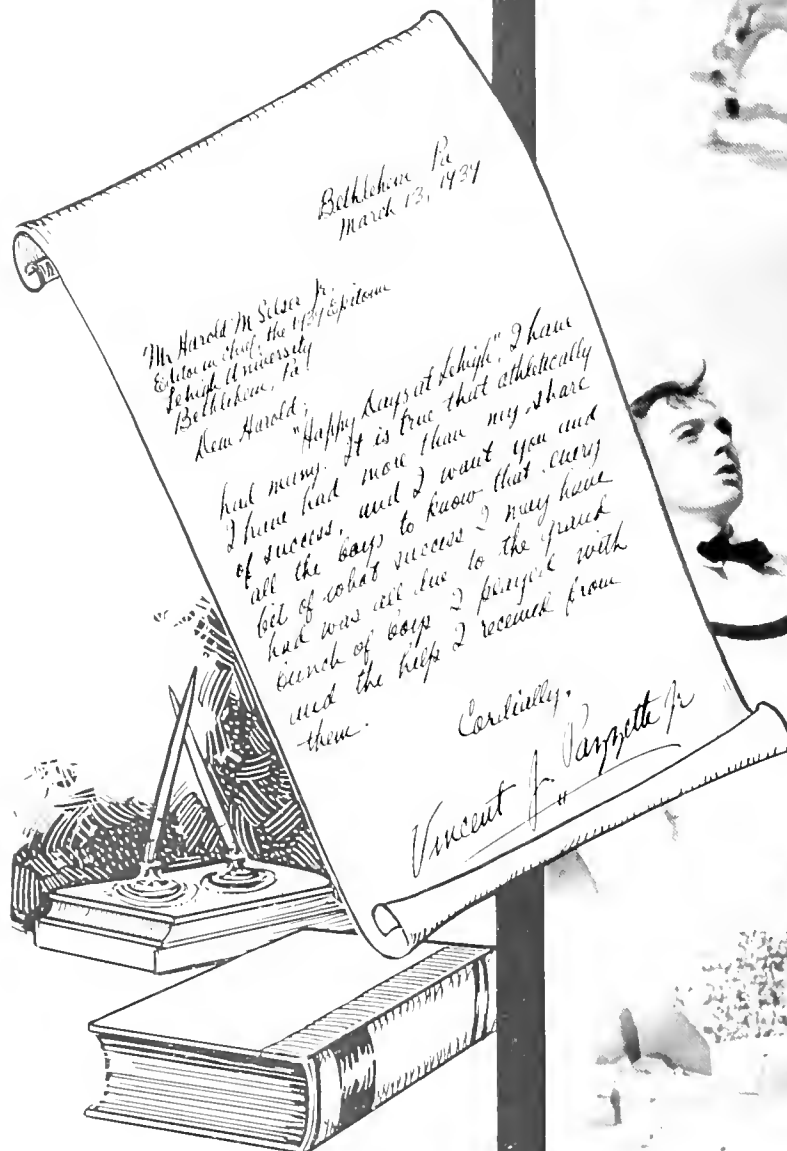 Bethlehem Pa
March 13, 1934
Mr Harold M Selser Jr.
Editor in Chief, the 1934 Epitome
Lehigh University
Bethlehem, Pa.
Dear Harold;
"Happy Days at Lehigh", I have
had many. It is true that athletically
I have had more than my share
of success, and I want you and
all the boys to know that every
bit of what success I may have
had was all due to the grand
bunch of boys I played with
and the help I received from
them.
Cordially,
Vincent J. Pazzetti Jr